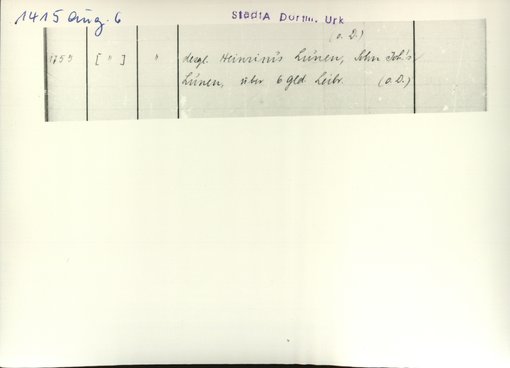 1415 Aug. 6
StadtA Dortm. Urk
(o. D.)
1755 [ " ] " desgl. Heinrin's Lünen, Sohn Joh.'s
Lünen, über 6 gld. Leibr. (o. D.)